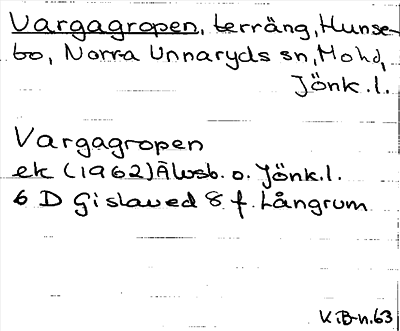 Vargagropen, terräng, Hunse-
bo, Norra Unnaryds sn, Mo hd,
Jönk.l.
Vargagropen
ek (1962) Älvsb. o. Jönk.l.
6 D Gislaved 8 f. Långrum
K.B-n.63